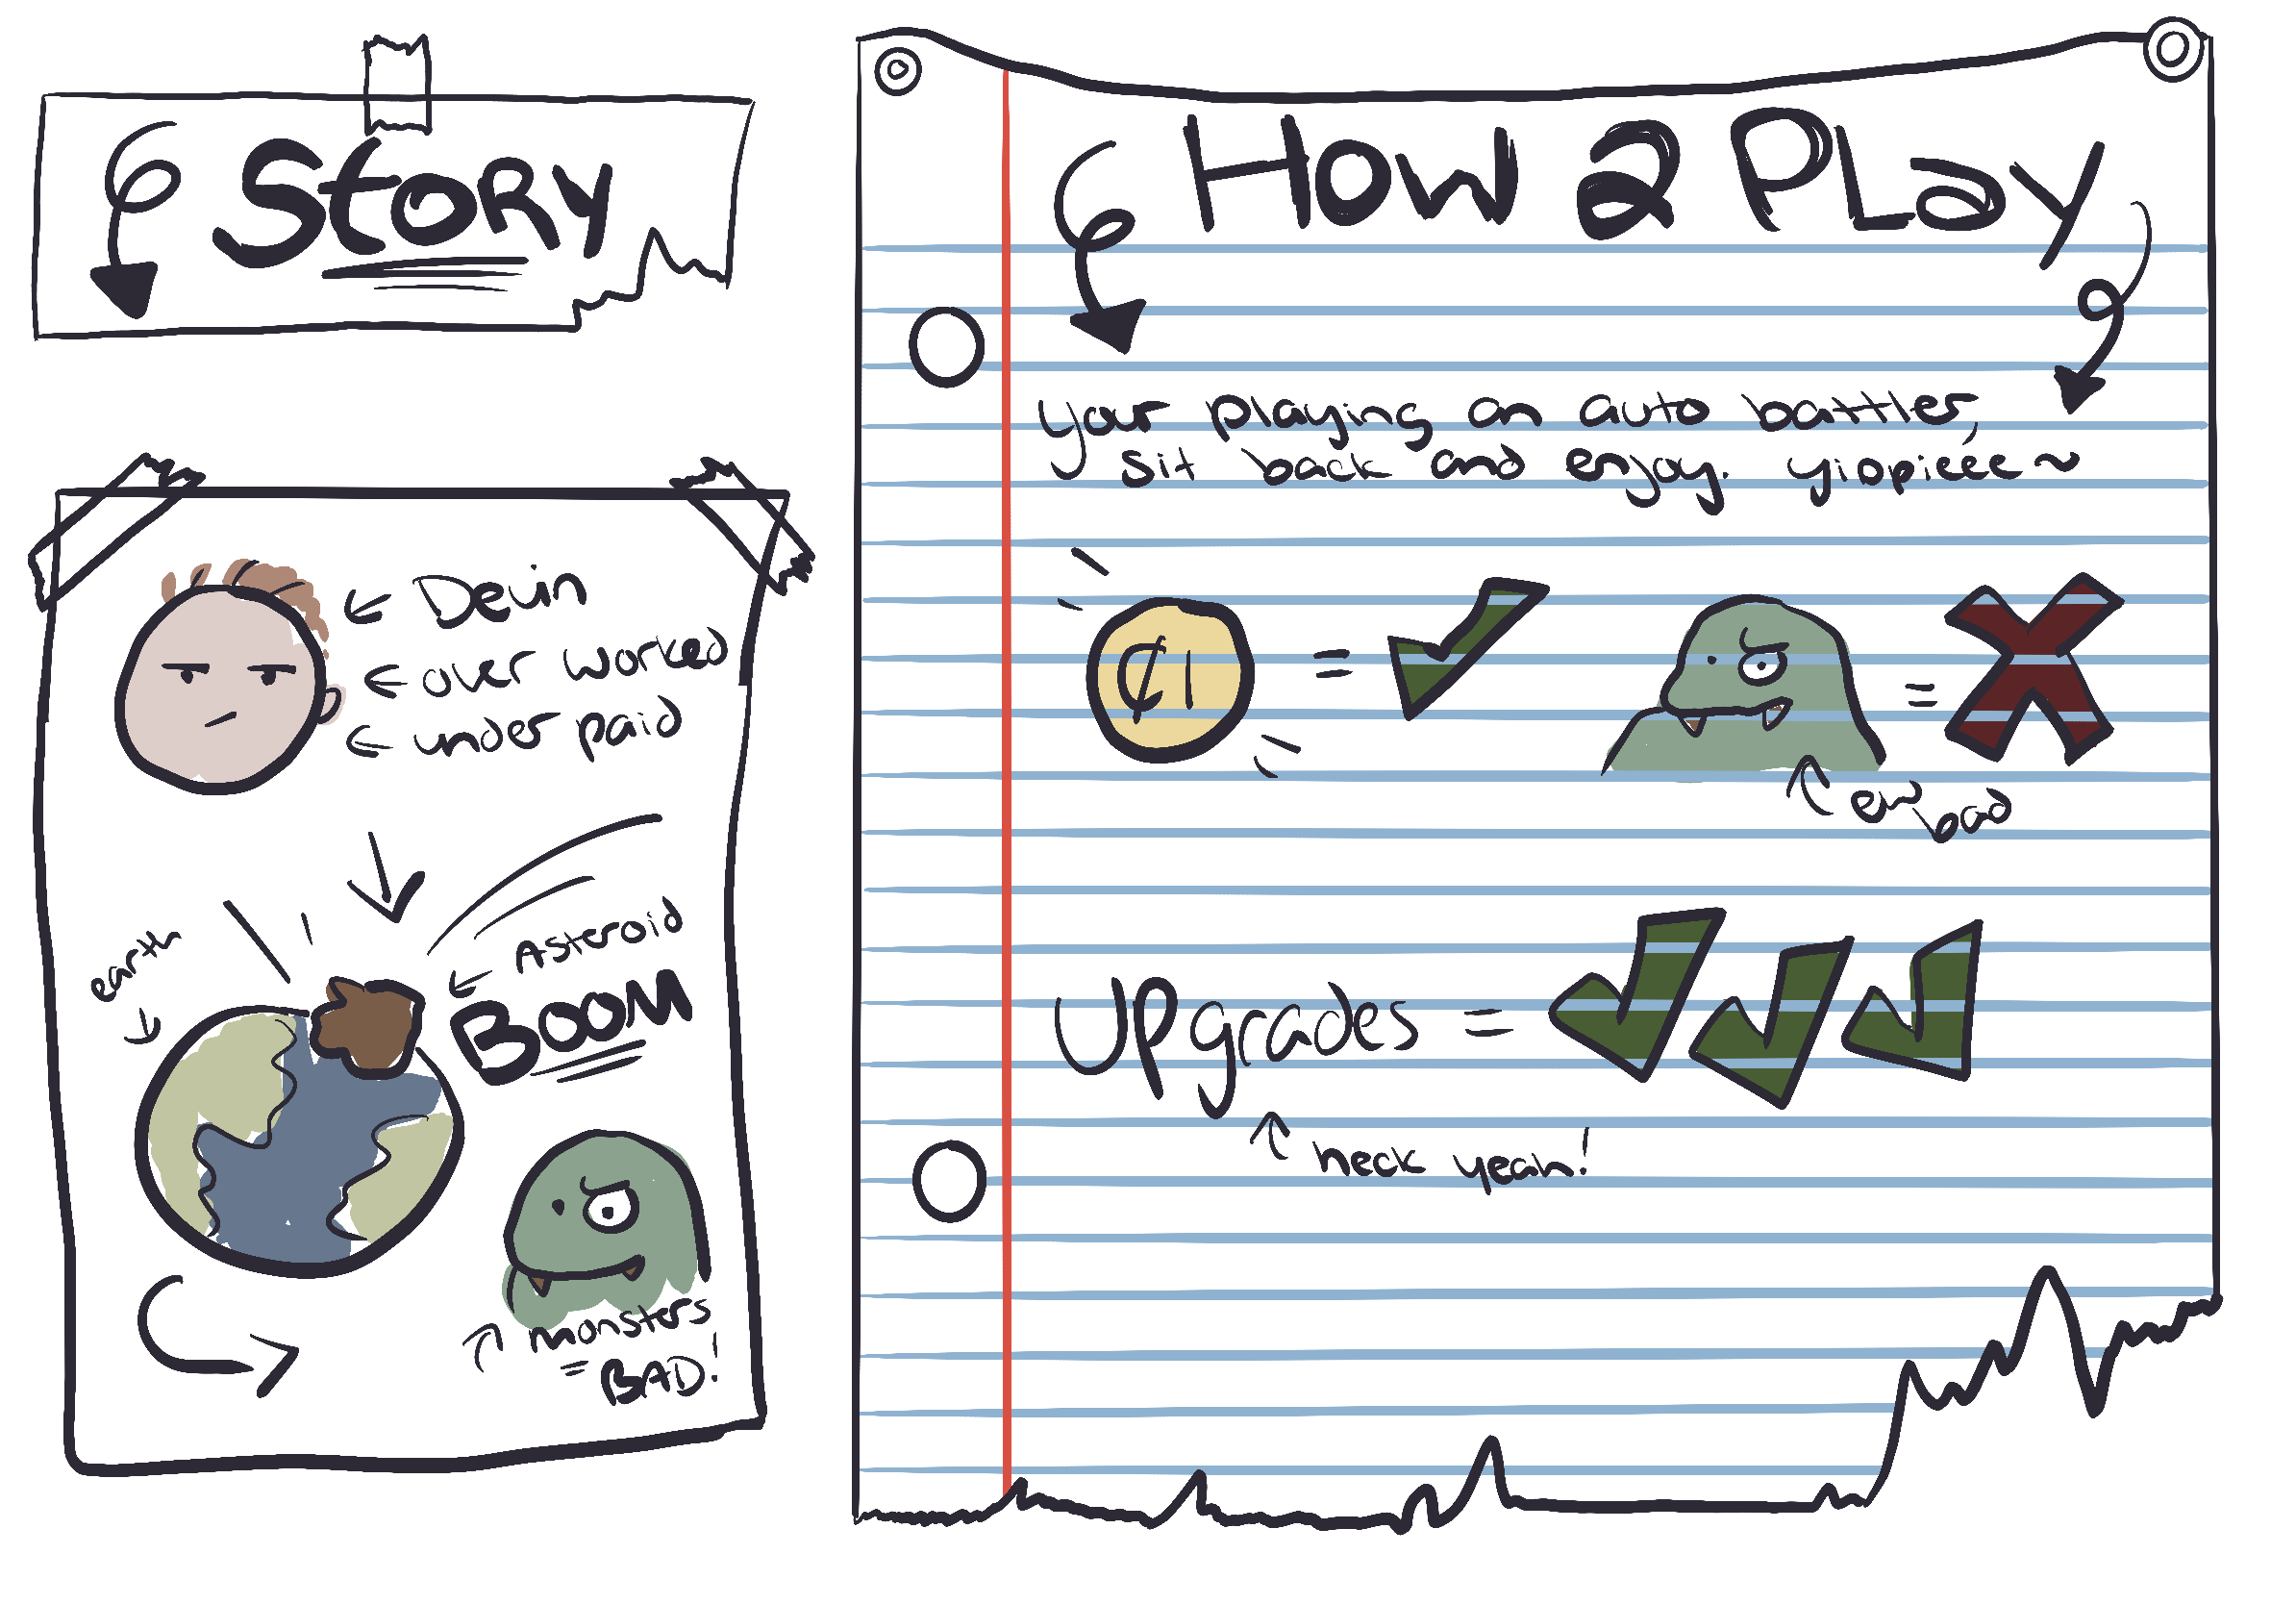 Story
Devin
over worked
under paid
earth
Asteroid
BOOM
monsters
= BAD!
How 2 Play
your playing an auto battler,
sit back and enjoy. yiopieee ~
₵1 =
=
ew bad
Upgrades =
heck yeah!